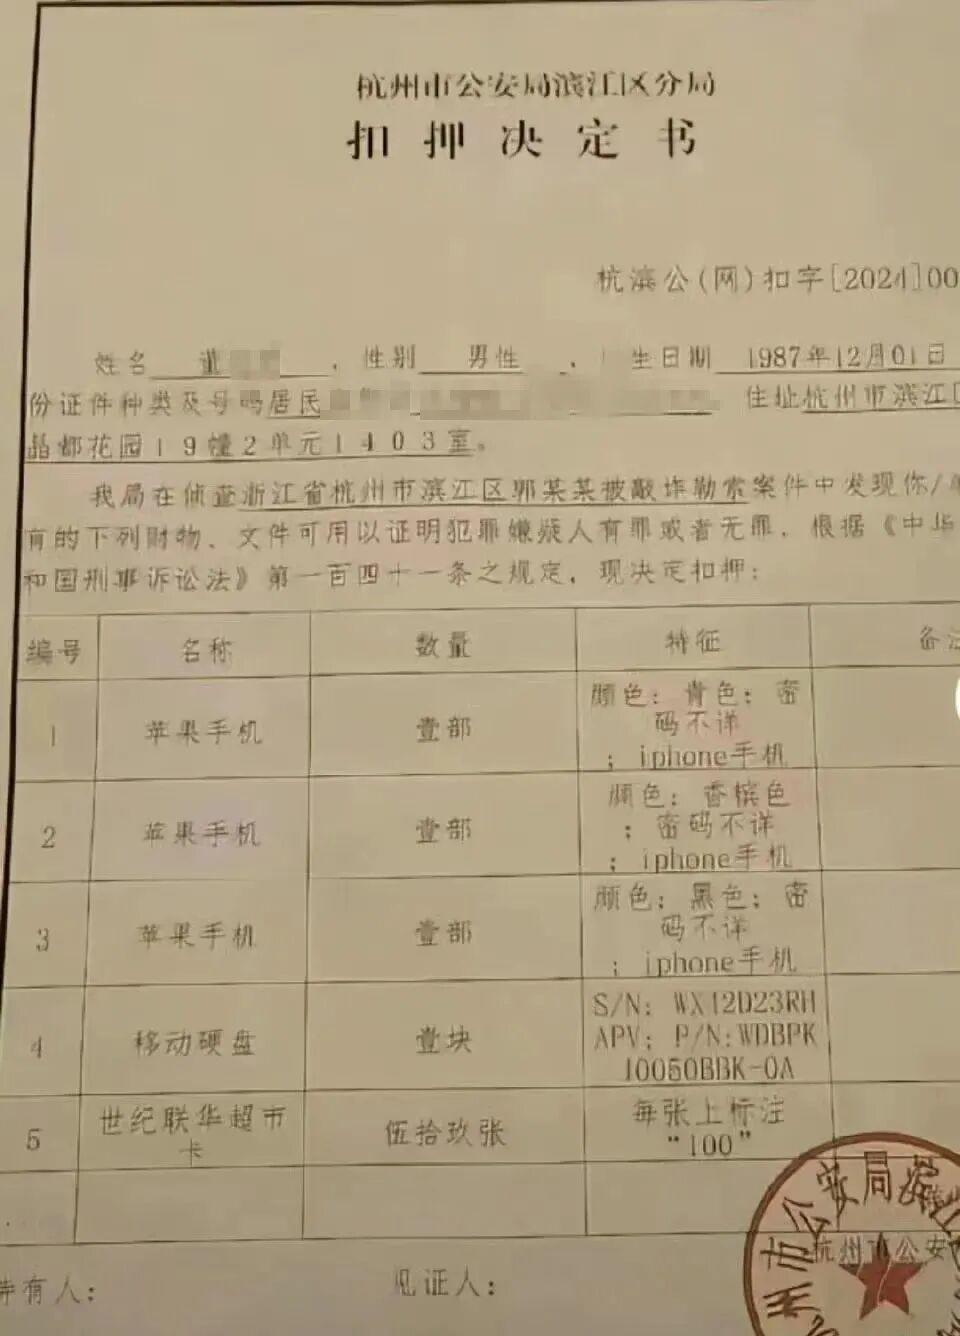 杭州市公安局滨江区分局
扣押决定书
杭滨公(网)扣字[2024]00
姓名 董 , 性别 男性 , 生日期 1987年12月01日
份证件种类及号码居民 住址杭州市滨江区
晶都花园19幢2单元1403室。
我局在侦查浙江省杭州市滨江区郭某某被敲诈勒索案件中发现你/
有的下列财物、文件可用以证明犯罪嫌疑人有罪或者无罪，根据《中华
和国刑事诉讼法》第一百四十一条之规定，现决定扣押:
编号 名称 数量 特征 备注
1 苹果手机 壹部 颜色: 青色; 密
码不详
; iphone手机
2 苹果手机 壹部 颜色: 香槟色
; 密码不详
; iphone手机
3 苹果手机 壹部 颜色: 黑色; 密
码不详
; iphone手机
4 移动硬盘 壹块 S/N: WX12D23RH
APV; P/N:WDBPK
10050BBK-0A
5 世纪联华超市
卡 伍拾玖张 每张上标注
“100”
持有人: 见证人:
杭州市公安
州市公安局滨江